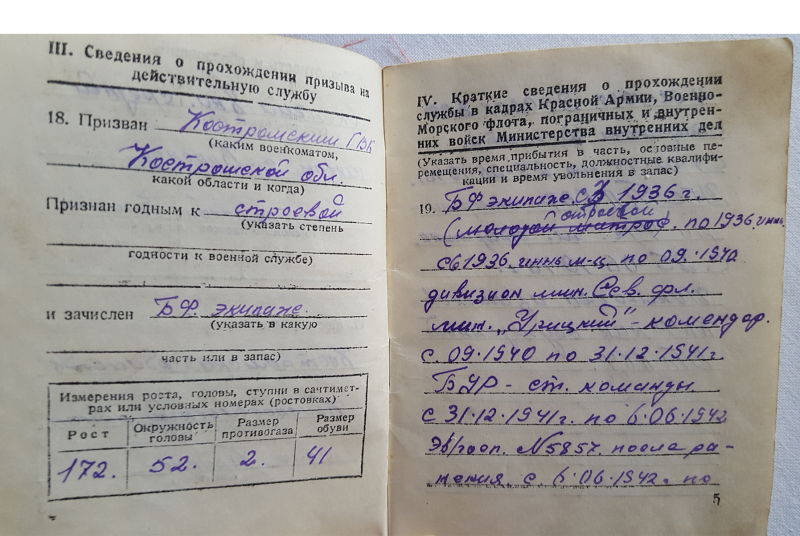 III. Сведения о прохождении призыва на
действительную службу
18. Призван Костромским ГВК
(каким военкоматом,
Костромской обл.
какой области и когда)
Признан годным к строевой
(указать степень
годности к военной службе)
и зачислен БФ экипаже.
(указать в какую
часть или в запас)
Измерения роста, головы, ступни в сантимет-
рах или условных номерах (ростовках)
Рост Окружность головы Размер противогаза Размер обуви
172. 52. 2. 41
IV. Краткие сведения о прохождении
службы в кадрах Красной Армии, Военно-
Морского флота, пограничных и внутрен-
них войск Министерства внутренних дел
(Указать время прибытия в часть, основные пе-
ремещения, специальность, должностные квалифи-
кации и время увольнения в запас)
19. БФ экипаже с 1936 г.
строевой
(молодой матрос. по 1936
1936 м-ц. по 09.1940
дивизион мин. Сев. фл.
мин. „Урицкий" - комендор.
с 09.1940 по 31.12.1941г
БУР - ст. команды
с 31.12.1941г. по 6.06.1942
Эв/госп. N5857. после ра-
нения с 6.06.1942. по
5